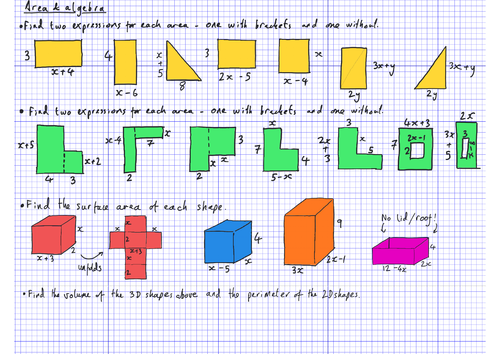 Area & algebra
• Find two expressions for each area - one with brackets and one without.
3 x+4 4 x-6 x+5 8 3 2x-5 x x-4 3x+y 2y 3x+y 2y
• Find two expressions for each area - one with brackets and one without.
x+5 4 3 x+2 x-4 x 7 2 3 x 2 x 7 4 5-x 3 2x+3 x 5 4x+3 2x-1 7 2 2x 3x+5 3 x
• Find the surface area of each shape.
x+3 2 x unfolds x x x 2 x+3 x 2 x-5 x 4 3x 2x-1 9 No lid/roof! 12-4x 2x 4
• Find the volume of the 3D shapes above and the perimeter of the 2D shapes.